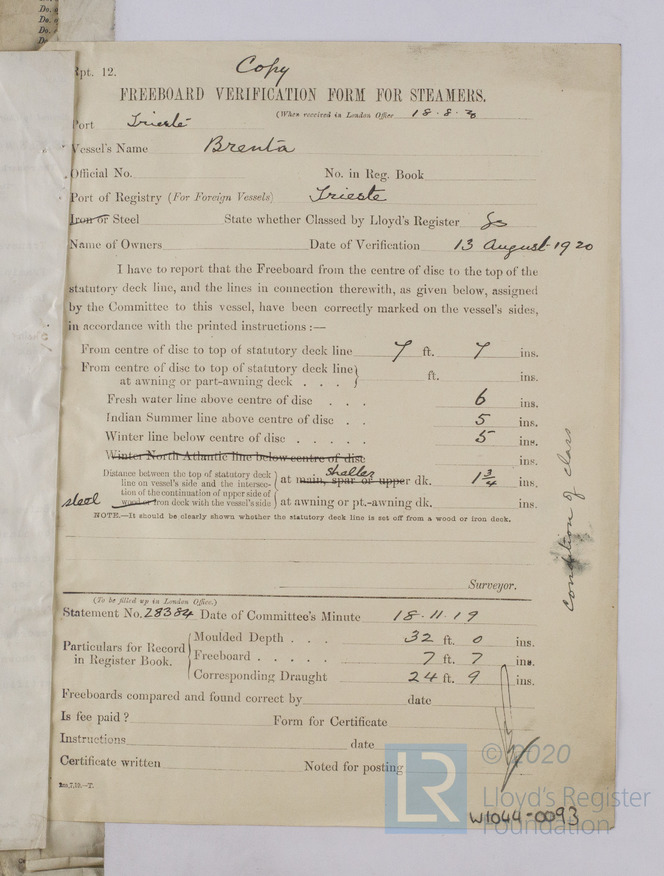 Do.
Do.
Do.
Do.
Rpt. 12.
Copy
FREEBOARD VERIFICATION FORM FOR STEAMERS.
(When received in London Office 18.8.20
Port Trieste
Vessel's Name Brenta
Official No. No. in Reg. Book
Port of Registry (For Foreign Vessels) Trieste
Iron or Steel State whether Classed by Lloyd's Register
Name of Owners Date of Verification 13 August 1920
I have to report that the Freeboard from the centre of disc to the top of the
statutory deck line, and the lines in connection therewith, as given below, assigned
by the Committee to this vessel, have been correctly marked on the vessel's sides,
in accordance with the printed instructions :—
From centre of disc to top of statutory deck line 7 ft. 7 ins.
From centre of disc to top of statutory deck line
at awning or part-awning deck . . . ft. ins.
Fresh water line above centre of disc . . . 6 ins.
Indian Summer line above centre of disc . . 5 ins.
Winter line below centre of disc . . . . . 5 ins.
Winter North Atlantic line below centre of disc ins.
Distance between the top of statutory deck
line on vessel's side and the intersec-
tion of the continuation of upper side of
steel wood or iron deck with the vessel's side
shelter
at main, spar or upper dk. 1 3/4 ins.
at awning or pt.-awning dk. ins.
NOTE.—It should be clearly shown whether the statutory deck line is set off from a wood or iron deck.
condition of class
Surveyor.
(To be filled up in London Office.)
Statement No. 28384 Date of Committee's Minute 18.11.19
Particulars for Record
in Register Book.
Moulded Depth . . . 32 ft. 0 ins.
Freeboard . . . . . 7 ft. 7 ins.
Corresponding Draught 24 ft. 9 ins.
Freeboards compared and found correct by date
Is fee paid? Form for Certificate
Instructions date
Certificate written Noted for posting
2m,7,19.—T.
LR
© 2020
Lloyd's Register
Foundation
W1044-0093